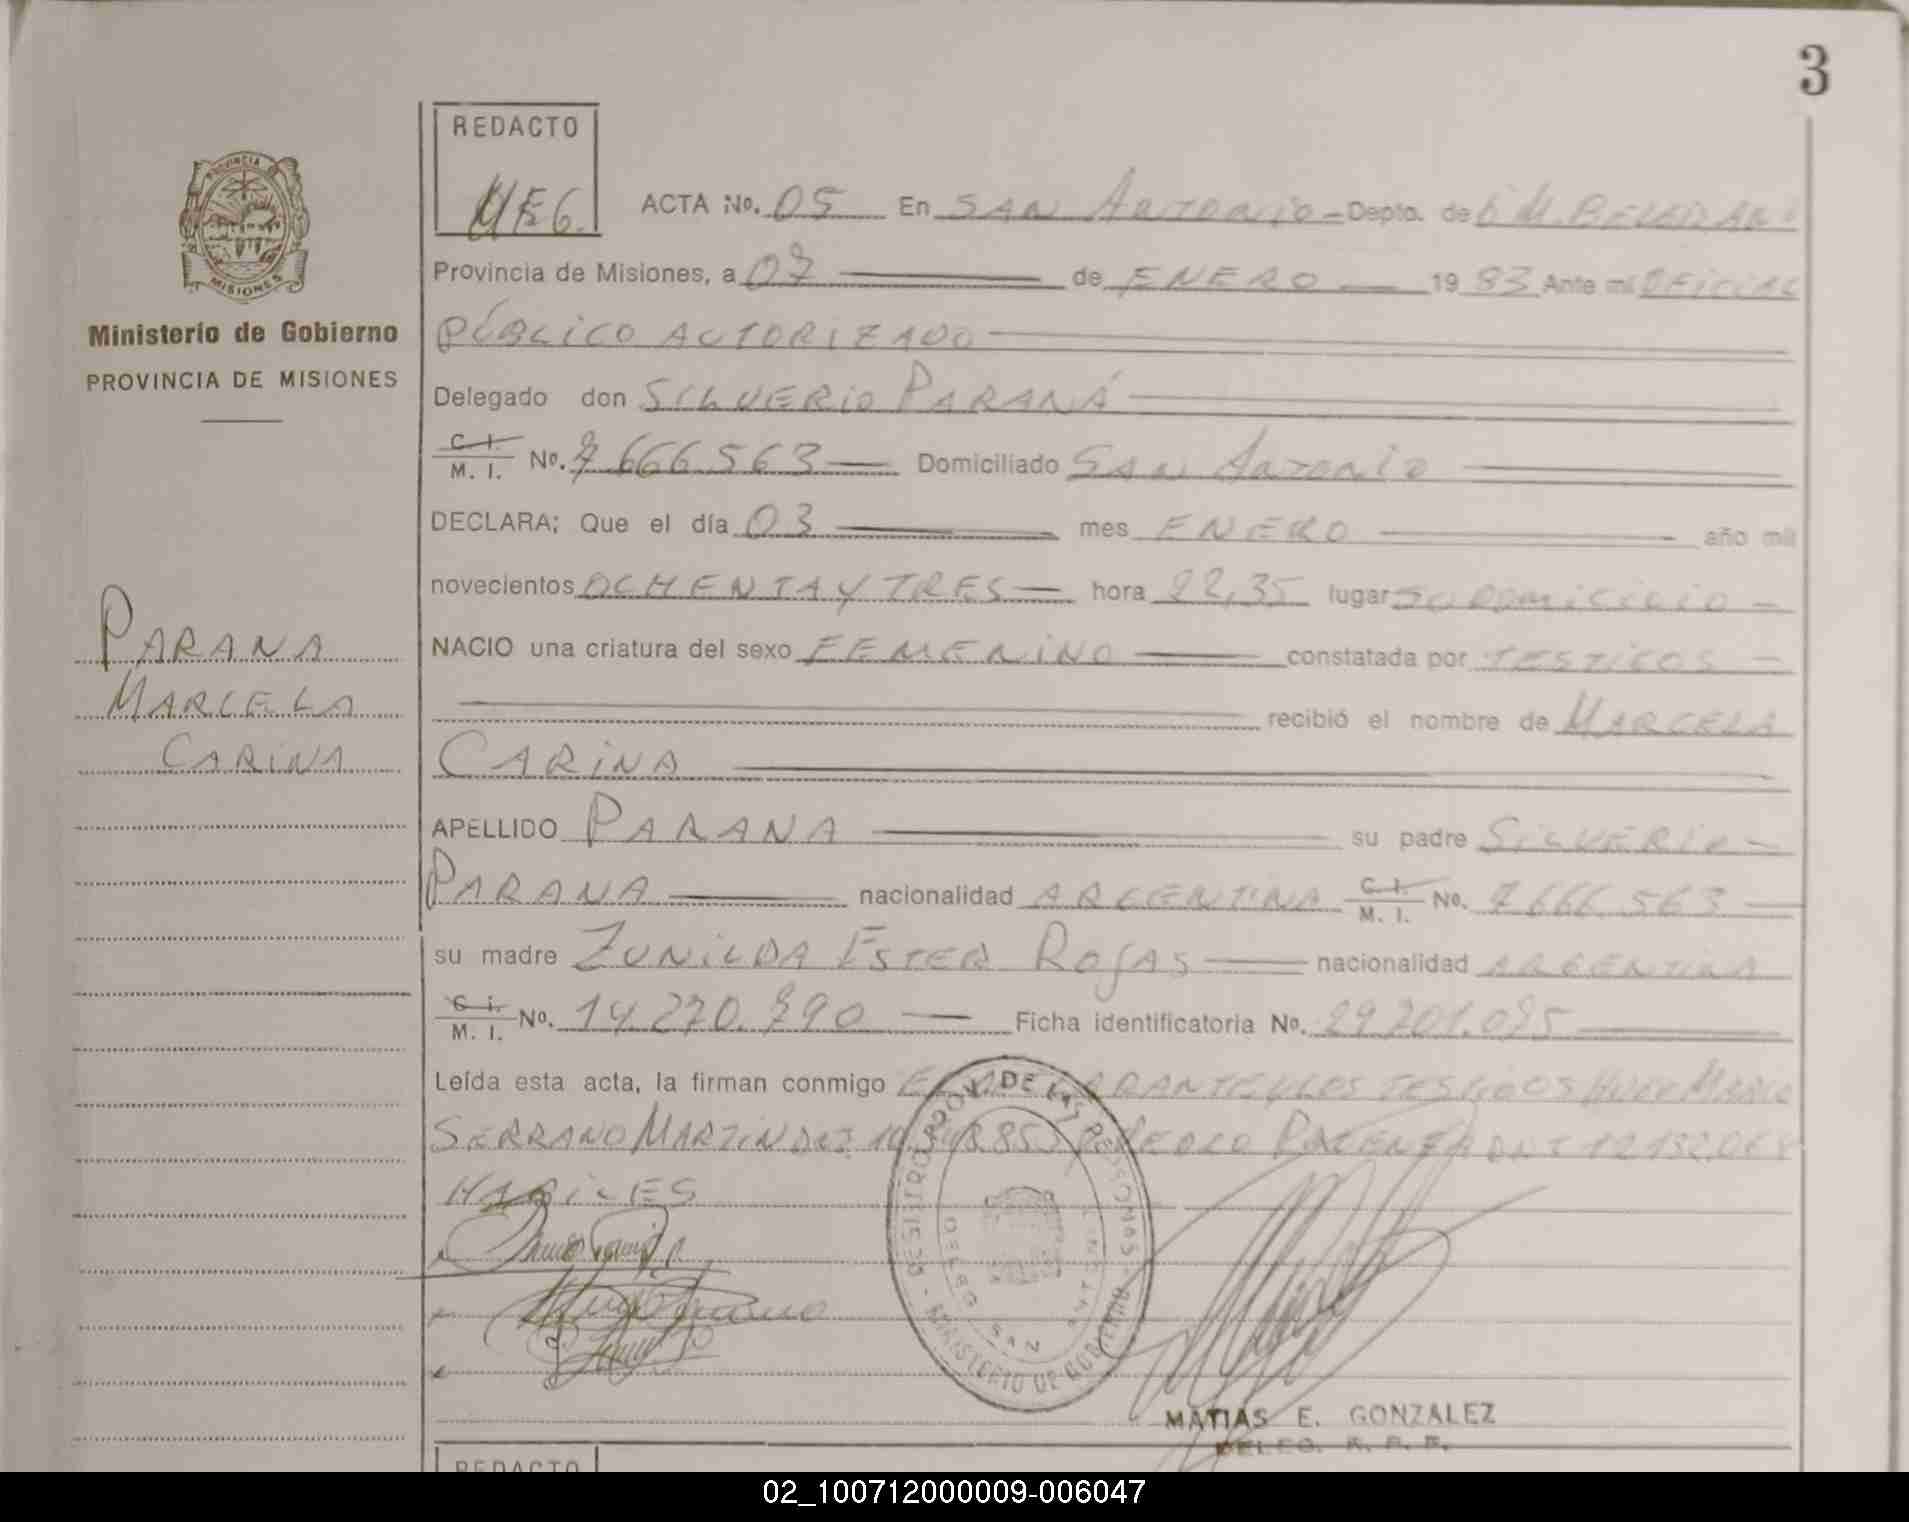 3
REDACTO
MEG.
PROVINCIA
MISIONES
Ministerio de Gobierno
PROVINCIA DE MISIONES
PARANA
MARCELA
CARINA
ACTA No. 05 En SAN ANTONIO - Depto. de G M. BELGRANO
Provincia de Misiones, a 07 de ENERO 19 83 Ante mí OFICIAL
PÚBLICO AUTORIZADO
Delegado don SILVERIO PARANÁ
C. I. M. I. No. 7.666.563 Domiciliado SAN ANTONIO
DECLARA; Que el día 03 mes ENERO año mil
novecientos OCHENTA Y TRES hora 22,35 lugar SU DOMICILIO
NACIO una criatura del sexo FEMENINO constatada por TESTIGOS
recibió el nombre de MARCELA
CARINA
APELLIDO PARANA su padre SILVERIO
PARANA nacionalidad ARGENTINA C. I. M. I. No. 7.666.563
su madre ZUNILDA ESTER ROJAS nacionalidad ARGENTINA
C. I. M. I. No. 14.270.790 Ficha identificatoria No. 29.201.095
Leída esta acta, la firman conmigo EL DECLARANTE Y LOS TESTIGOS HUGO MARIO
SERRANO MARTIN DNI. PEDRO DNI 12.132.068
HABILES
MATIAS E. GONZALEZ
DELEG. R. P. P.
REDACTO
02_100712000009-006047